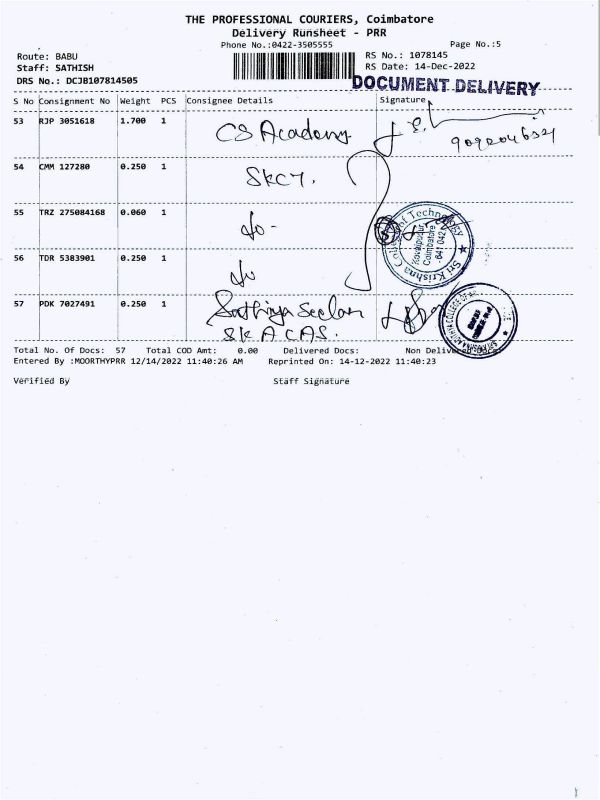 THE PROFESSIONAL COURIERS, Coimbatore
Delivery Runsheet - PRR
Phone No.:0422-3505555 Page No.:5
Route: BABU RS No.: 1078145
Staff: SATHISH RS Date: 14-Dec-2022
DRS No.: DCJB107814505 DOCUMENT DELIVERY
S No Consignment No Weight PCS Consignee Details Signature
53 RJP 3051618 1.700 1 CS Academy
54 CMM 127280 0.250 1 SKCT.
55 TRZ 275084168 0.060 1 do-
Sri Krishna College of Technology
Kovaipudur
Coimbatore
-641 042
56 TDR 5383901 0.250 1 do
57 PDK 7027491 0.250 1 Sathiya Seelan
SK A CAS.
Total No. Of Docs: 57 Total COD Amt: 0.00 Delivered Docs: Non Delivered Docs:
Entered By :MOORTHYPRR 12/14/2022 11:40:26 AM Reprinted On: 14-12-2022 11:40:23
Verified By Staff Signature